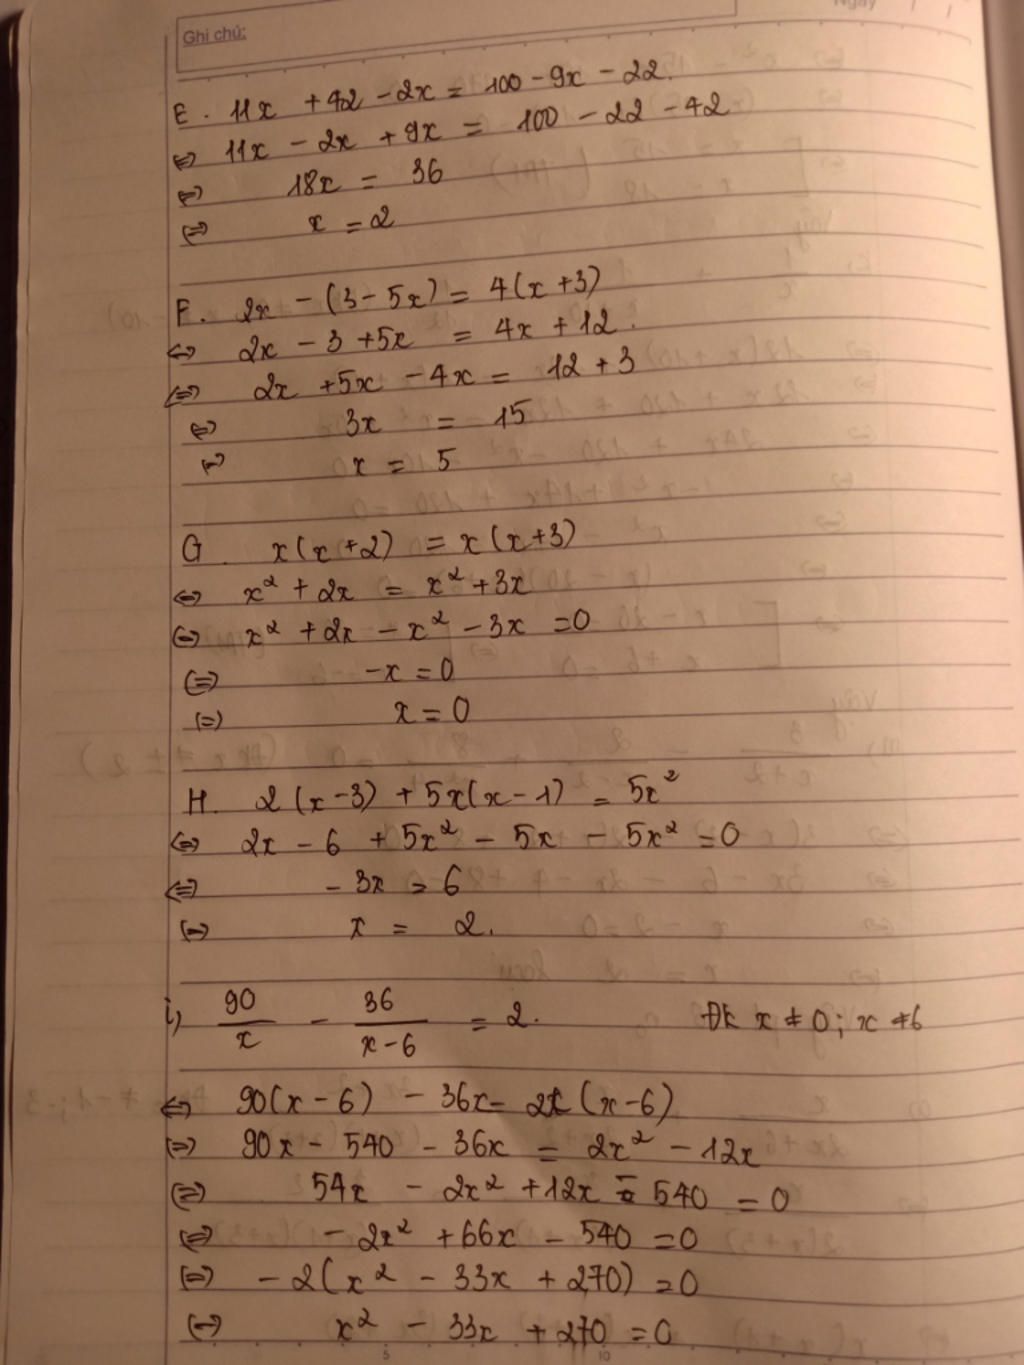 Ghi chú:
Ngày
E. 11x + 42 - 2x = 100 - 9x - 22.
⇔ 11x - 2x + 9x = 100 - 22 - 42
⇔ 18x = 36
⇔ x = 2
F. 2x - (3 - 5x) = 4(x+3)
⇔ 2x - 3 + 5x = 4x + 12.
⇔ 2x + 5x - 4x = 12 + 3
⇔ 3x = 15
⇔ x = 5
G. x(x+2) = x(x+3)
⇔ x² + 2x = x² + 3x
⇔ x² + 2x - x² - 3x = 0
⇔ -x = 0
⇔ x = 0
H. 2(x-3) + 5x(x-1) = 5x²
⇔ 2x - 6 + 5x² - 5x - 5x² = 0
⇔ - 3x = 6
⇔ x = 2.
i) 90/x - 36/(x-6) = 2. ĐK x ≠ 0; x ≠ 6
⇔ 90(x-6) - 36x = 2x(x-6)
⇔ 90x - 540 - 36x = 2x² - 12x
⇔ 54x - 2x² + 12x - 540 = 0
⇔ - 2x² + 66x - 540 = 0
⇔ -2(x² - 33x + 270) = 0
⇔ x² - 33x + 270 = 0
5 10